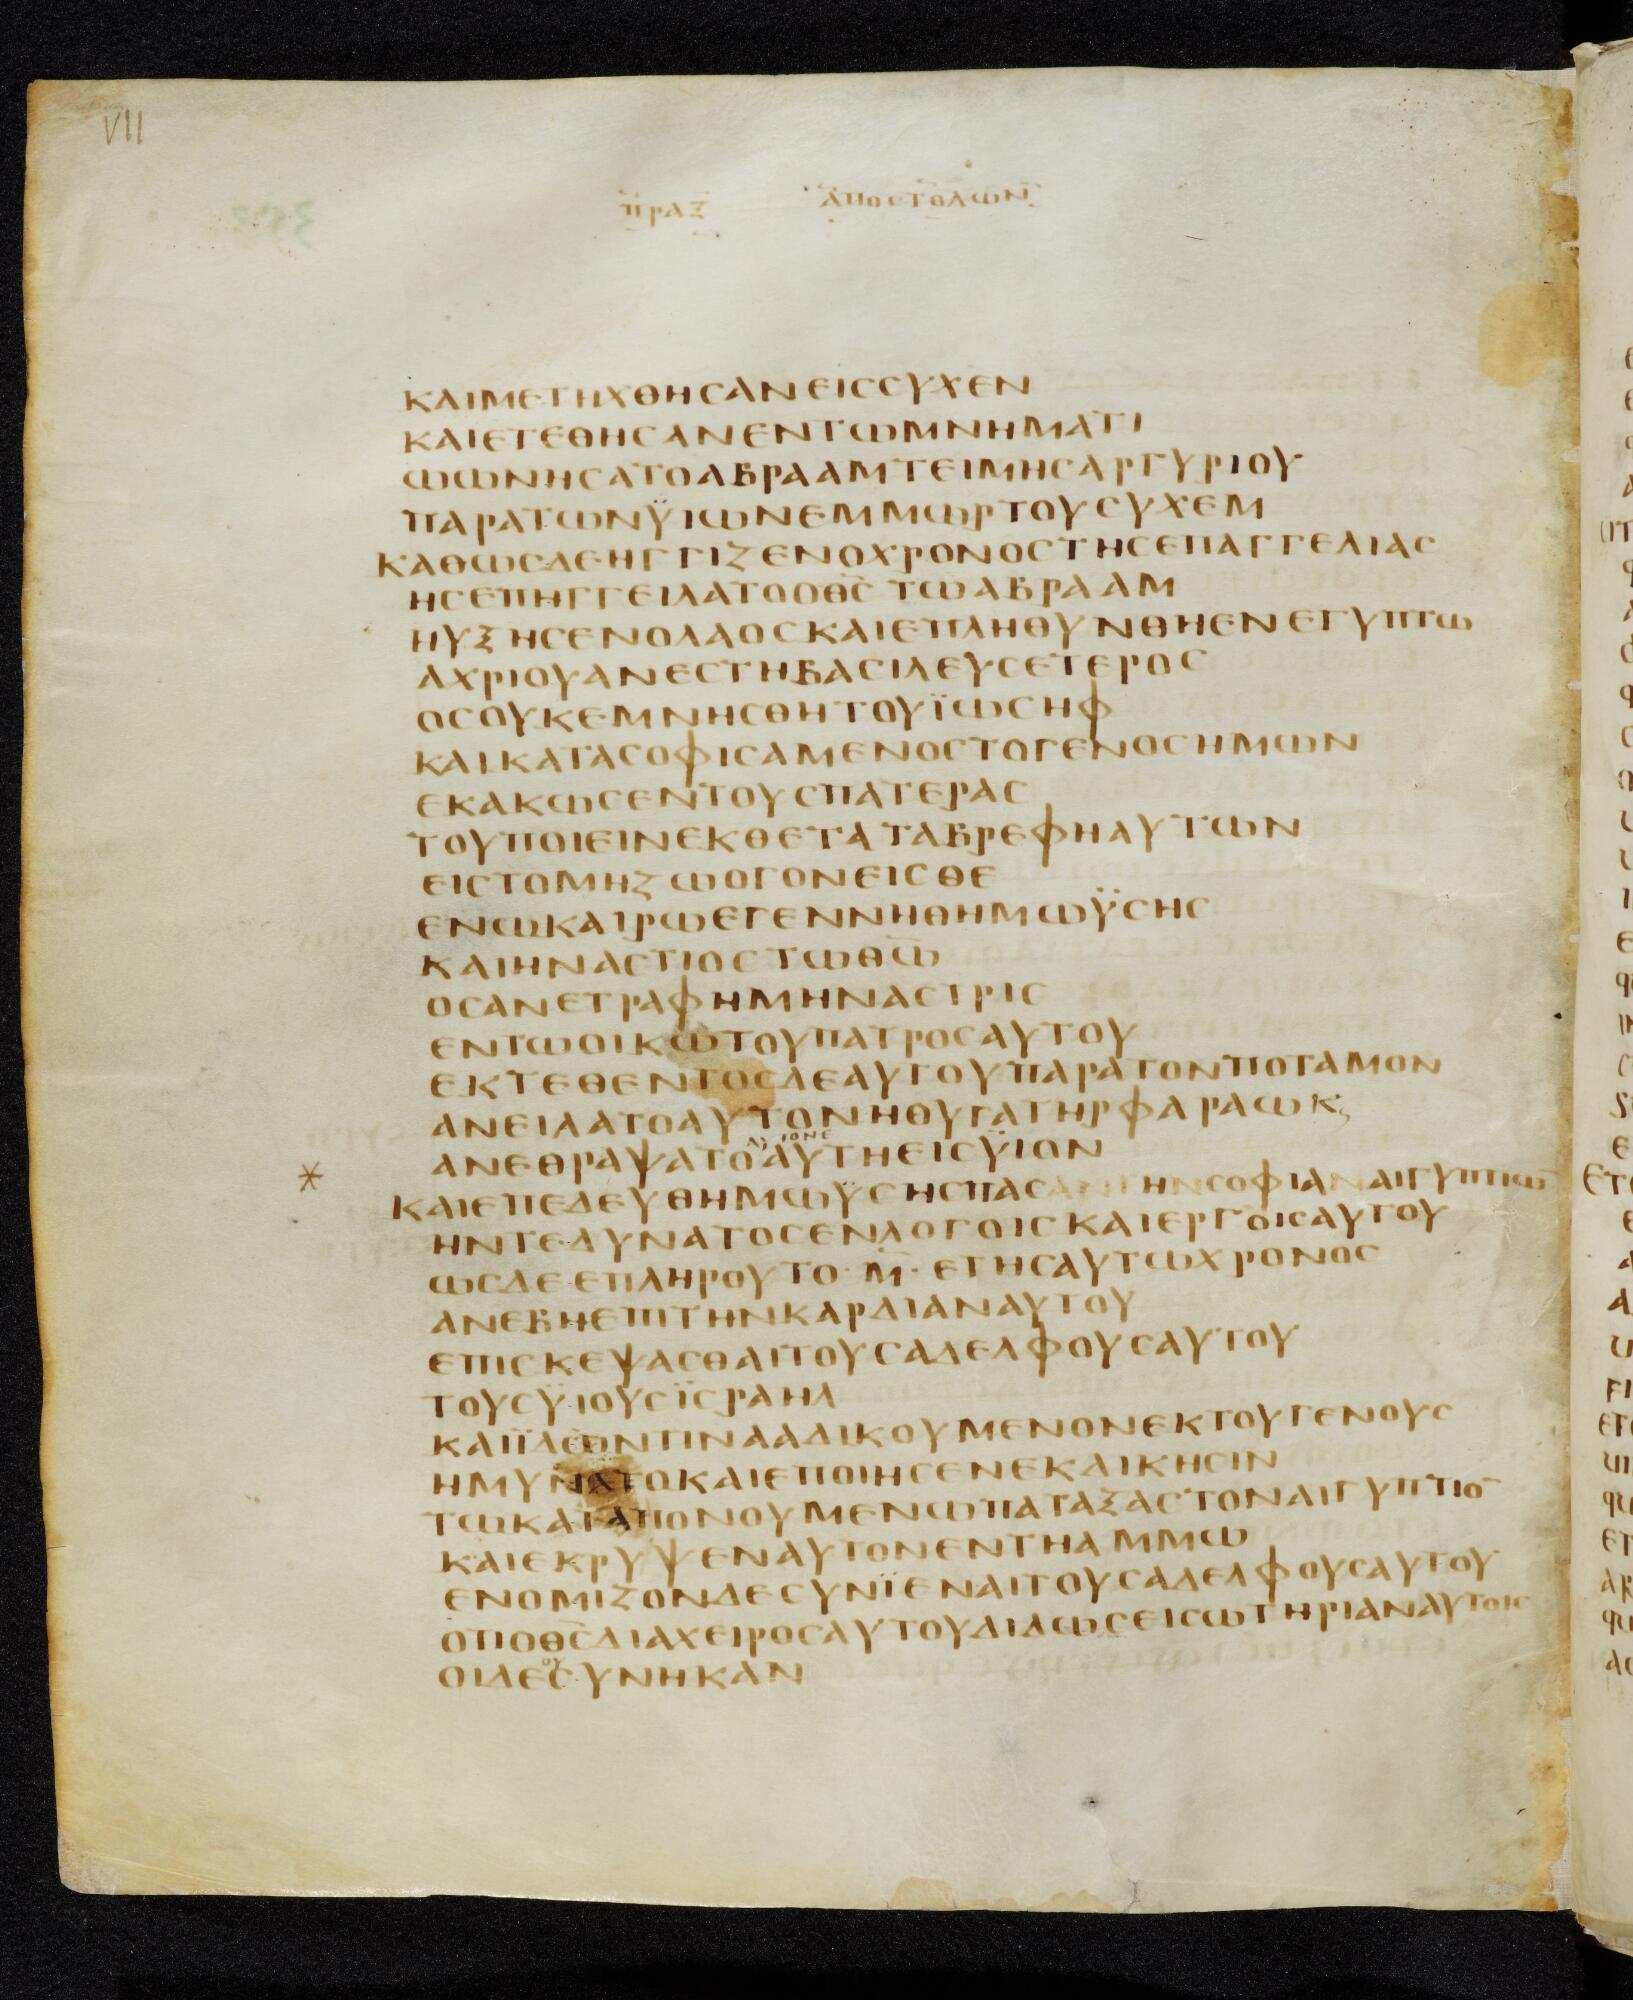 VII
ΠΡΑΞ ΑΠΟΣΤΟΛΩΝ
ΚΑΙΜΕΤΗΧΘΗϹΑΝΕΙϹϹΥΧΕΝ
ΚΑΙΕΤΕΘΗϹΑΝΕΝΤΩΜΝΗΜΑΤΙ
ΩΩΝΗϹΑΤΟΑΒΡΑΑΜΤΕΙΜΗϹΑΡΓΥΡΙΟΥ
ΠΑΡΑΤΩΝΫΙΩΝΕΜΜΩΡΤΟΥϹΥΧΕΜ
ΚΑΘΩϹΔΕΗΓΓΙΖΕΝΟΧΡΟΝΟϹΤΗϹΕΠΑΓΓΕΛΙΑϹ
ΗϹΕΠΗΓΓΕΙΛΑΤΟΟΘ̅Ϲ̅ ΤΩΑΒΡΑΑΜ
ΗΥΞΗϹΕΝΟΛΑΟϹΚΑΙΕΠΛΗΘΥΝΘΗΕΝΕΓΥΠΤΩ
ΑΧΡΙΟΥΑΝΕϹΤΗΒΑϹΙΛΕΥϹΕΤΕΡΟϹ
ΟϹΟΥΚΕΜΝΗϹΘΗΤΟΥΪΩϹΗΦ
ΚΑΙΚΑΤΑϹΟΦΙϹΑΜΕΝΟϹΤΟΓΕΝΟϹΗΜΩΝ
ΕΚΑΚΩϹΕΝΤΟΥϹΠΑΤΕΡΑϹ
ΤΟΥΠΟΙΕΙΝΕΚΘΕΤΑΤΑΒΡΕΦΗΑΥΤΩΝ
ΕΙϹΤΟΜΗΖΩΟΓΟΝΕΙϹΘΕ
ΕΝΩΚΑΙΡΩΕΓΕΝΝΗΘΗΜΩΫϹΗϹ
ΚΑΙΗΝΑϹΤΙΟϹΤΩΘ̅Ω̅
ΟϹΑΝΕΤΡΑΦΗΜΗΝΑϹΤΡΙϹ
ΕΝΤΩΟΙΚΩΤΟΥΠΑΤΡΟϹΑΥΤΟΥ
ΕΚΤΕΘΕΝΤΟϹΔΕΑΥΤΟΥΠΑΡΑΤΟΝΠΟΤΑΜΟΝ
ΑΝΕΙΛΑΤΟΑΥΤΟΝΗΘΥΓΑΤΗΡΦΑΡΑΩΚϛ
ΑΝΕΘΡΑΨΑΤΟΑΥΤΗΕΙϹΫΙΟΝ
※ ΚΑΙΕΠΕΔΕΥΘΗΜΩΫϹΗϹΠΑϹΑΝΤΗΝϹΟΦΙΑΝΑΙΓΥΠΤΙΩ̅
ΗΝΤΕΔΥΝΑΤΟϹΕΝΛΟΓΟΙϹΚΑΙΕΡΓΟΙϹΑΥΤΟΥ
ΩϹΔΕΕΠΛΗΡΟΥΤΟ·Μ̅·ΕΤΗϹΑΥΤΩΧΡΟΝΟϹ
ΑΝΕΒΗΕΠΙΤΗΝΚΑΡΔΙΑΝΑΥΤΟΥ
ΕΠΙϹΚΕΨΑϹΘΑΙΤΟΥϹΑΔΕΛΦΟΥϹΑΥΤΟΥ
ΤΟΥϹΫΙΟΥϹΪϹΡΑΗΛ
ΚΑΙΪΔΕΩΝΤΙΝΑΑΔΙΚΟΥΜΕΝΟΝΕΚΤΟΥΓΕΝΟΥϹ
ΗΜΥΝΑΤΟΚΑΙΕΠΟΙΗϹΕΝΕΚΔΙΚΗϹΙΝ
ΤΩΚΑΤΑΠΟΝΟΥΜΕΝΩΠΑΤΑΞΑϹΤΟΝΑΙΓΥΠΤΙΟ̅
ΚΑΙΕΚΡΥΨΕΝΑΥΤΟΝΕΝΤΗΑΜΜΩ
ΕΝΟΜΙΖΟΝΔΕϹΥΝΪΕΝΑΙΤΟΥϹΑΔΕΛΦΟΥϹΑΥΤΟΥ
ΟΤΙΟΘ̅Ϲ̅ΔΙΑΧΕΙΡΟϹΑΥΤΟΥΔΙΔΩϹΕΙϹΩΤΗΡΙΑΝΑΥΤΟΙϹ
ΟΙΔΕΟΥϹΥΝΗΚΑΝ